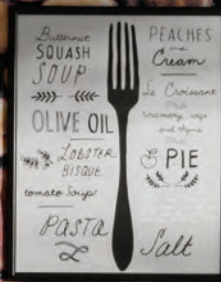 Butternut
SQUASH
SOUP
OLIVE OIL
LOBSTER
BISQUE
tomato Soup
PASTA
PEACHES
and
Cream
Le Croissant
rosemary, sage
and thyme
PIE
Salt